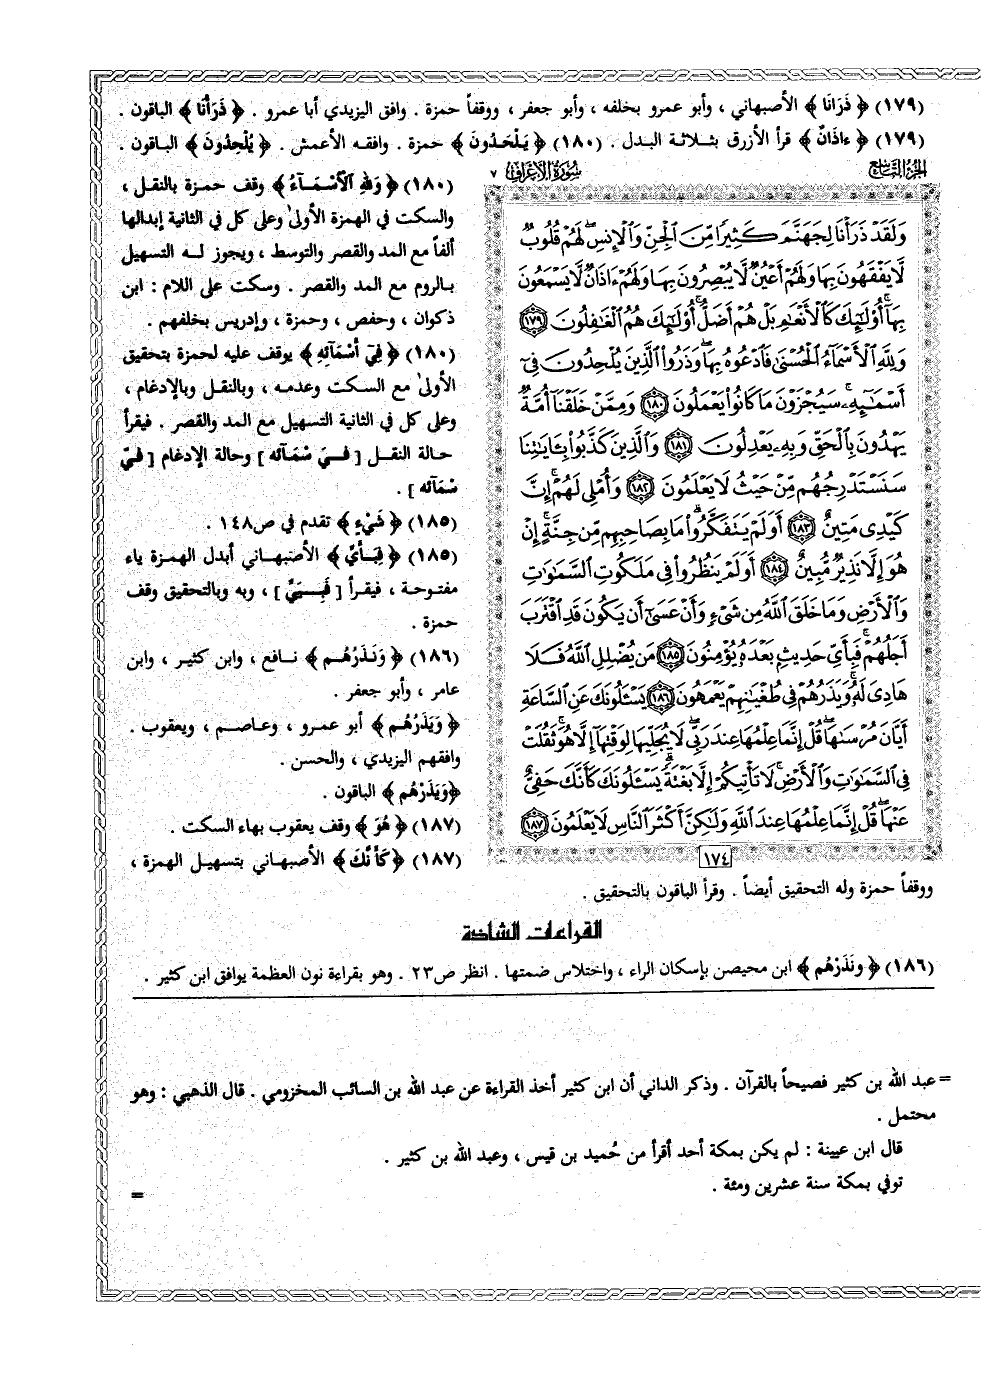 (١٧٩) ﴿ ذَرَانَا ﴾ الأصبهاني ، وأبو عمرو بخلفه ، وأبو جعفر ، ووقفاً حمزة . وافق اليزيدي أبا عمرو . ﴿ ذَرَأْنَا ﴾ الباقون .
(١٧٩) ﴿ ءاذَانٌ ﴾ قرأ الأزرق بثلاثة البدل . (١٨٠) ﴿ يَلْحَدُونَ ﴾ حمزة . وافقه الأعمش . ﴿ يُلْحِدُونَ ﴾ الباقون .
الجزء التاسع
سورة الأعراف ٧
وَلَقَدْ ذَرَأْنَا لِجَهَنَّمَ كَثِيرًا مِّنَ ٱلْجِنِّ وَٱلْإِنسِ ۖ لَهُمْ قُلُوبٌ
لَّا يَفْقَهُونَ بِهَا وَلَهُمْ أَعْيُنٌ لَّا يُبْصِرُونَ بِهَا وَلَهُمْ ءَاذَانٌ لَّا يَسْمَعُونَ
بِهَآ ۚ أُو۟لَـٰٓئِكَ كَٱلْأَنْعَـٰمِ بَلْ هُمْ أَضَلُّ ۚ أُو۟لَـٰٓئِكَ هُمُ ٱلْغَـٰفِلُونَ ١٧٩
وَلِلَّهِ ٱلْأَسْمَآءُ ٱلْحُسْنَىٰ فَٱدْعُوهُ بِهَا ۖ وَذَرُوا۟ ٱلَّذِينَ يُلْحِدُونَ فِىٓ
أَسْمَـٰٓئِهِۦ ۚ سَيُجْزَوْنَ مَا كَانُوا۟ يَعْمَلُونَ ١٨٠ وَمِمَّنْ خَلَقْنَآ أُمَّةٌ
يَهْدُونَ بِٱلْحَقِّ وَبِهِۦ يَعْدِلُونَ ١٨١ وَٱلَّذِينَ كَذَّبُوا۟ بِـَٔايَـٰتِنَا
سَنَسْتَدْرِجُهُم مِّنْ حَيْثُ لَا يَعْلَمُونَ ١٨٢ وَأُمْلِى لَهُمْ ۚ إِنَّ
كَيْدِى مَتِينٌ ١٨٣ أَوَلَمْ يَتَفَكَّرُوا۟ ۗ مَا بِصَاحِبِهِم مِّن جِنَّةٍ ۚ إِنْ
هُوَ إِلَّا نَذِيرٌ مُّبِينٌ ١٨٤ أَوَلَمْ يَنظُرُوا۟ فِى مَلَكُوتِ ٱلسَّمَـٰوَٰتِ
وَٱلْأَرْضِ وَمَا خَلَقَ ٱللَّهُ مِن شَىْءٍ وَأَنْ عَسَىٰٓ أَن يَكُونَ قَدِ ٱقْتَرَبَ
أَجَلُهُمْ ۖ فَبِأَىِّ حَدِيثٍۭ بَعْدَهُۥ يُؤْمِنُونَ ١٨٥ مَن يُضْلِلِ ٱللَّهُ فَلَا
هَادِىَ لَهُۥ ۚ وَيَذَرُهُمْ فِى طُغْيَـٰنِهِمْ يَعْمَهُونَ ١٨٦ يَسْـَٔلُونَكَ عَنِ ٱلسَّاعَةِ
أَيَّانَ مُرْسَىٰهَا ۖ قُلْ إِنَّمَا عِلْمُهَا عِندَ رَبِّى ۖ لَا يُجَلِّيهَا لِوَقْتِهَآ إِلَّا هُوَ ۚ ثَقُلَتْ
فِى ٱلسَّمَـٰوَٰتِ وَٱلْأَرْضِ ۚ لَا تَأْتِيكُمْ إِلَّا بَغْتَةً ۗ يَسْـَٔلُونَكَ كَأَنَّكَ حَفِىٌّ
عَنْهَا ۖ قُلْ إِنَّمَا عِلْمُهَا عِندَ ٱللَّهِ وَلَـٰكِنَّ أَكْثَرَ ٱلنَّاسِ لَا يَعْلَمُونَ ١٨٧
١٧٤
(١٨٠) ﴿ وَلِلَّهِ الْأَسْمَآءُ ﴾ وقف حمزة بالنقل ،
والسكت في الهمزة الأولىٰ وعلى كل في الثانية إبدالها
ألفاً مع المد والقصر والتوسط ، ويجوز لـه التسهيل
بالروم مع المد والقصر . وسكت على اللام : ابن
ذكوان ، وحفص ، وحمزة ، وإدريس بخلفهم .
(١٨٠) ﴿ فِيٓ أَسْمَآئِهِ ﴾ يوقف عليه لحمزة بتحقيق
الأولىٰ مع السكت وعدمه ، وبالنقل وبالإدغام ،
وعلى كل في الثانية التسهيل مع المد والقصر . فيقرأ
حالة النقل [ فِيَ سْمَآئه ] وحالة الإدغام [ فِيَّ
سْمَآئه ] .
(١٨٥) ﴿ شَيْءٍ ﴾ تقدم في ص١٤٨ .
(١٨٥) ﴿ فَبِأَيِّ ﴾ الأصبهاني أبدل الهمزة ياء
مفتوحة ، فيقرأ [ فَبِيَيِّ ] ، وبه وبالتحقيق وقف
حمزة .
(١٨٦) ﴿ وَنَذَرُهُم ﴾ نافع ، وابن كثير ، وابن
عامر ، وأبو جعفر .
﴿ وَيَذَرُهُم ﴾ أبو عمرو ، وعاصم ، ويعقوب .
وافقهم اليزيدي ، والحسن .
﴿وَيَذَرْهُم ﴾ الباقون .
(١٨٧) ﴿ هُوَ ﴾ وقف يعقوب بهاء السكت .
(١٨٧) ﴿ كَأَنَّكَ ﴾ الأصبهاني بتسهيل الهمزة ،
ووقفاً حمزة وله التحقيق أيضاً . وقرأ الباقون بالتحقيق .
القراءات الشاذة
(١٨٦) ﴿ ونَذَرْهُم ﴾ ابن محيصن بإسكان الراء ، واختلاس ضمتها . انظر ص٢٣ . وهو بقراءة نون العظمة يوافق ابن كثير .
= عبد الله بن كثير فصيحاً بالقرآن . وذكر الداني أن ابن كثير أخذ القراءة عن عبد الله بن السائب المخزومي . قال الذهبي : وهو
محتمل .
قال ابن عيينة : لم يكن بمكة أحد أقرأ من حُميد بن قيس ، وعبد الله بن كثير .
توفي بمكة سنة عشرين ومئة .
=